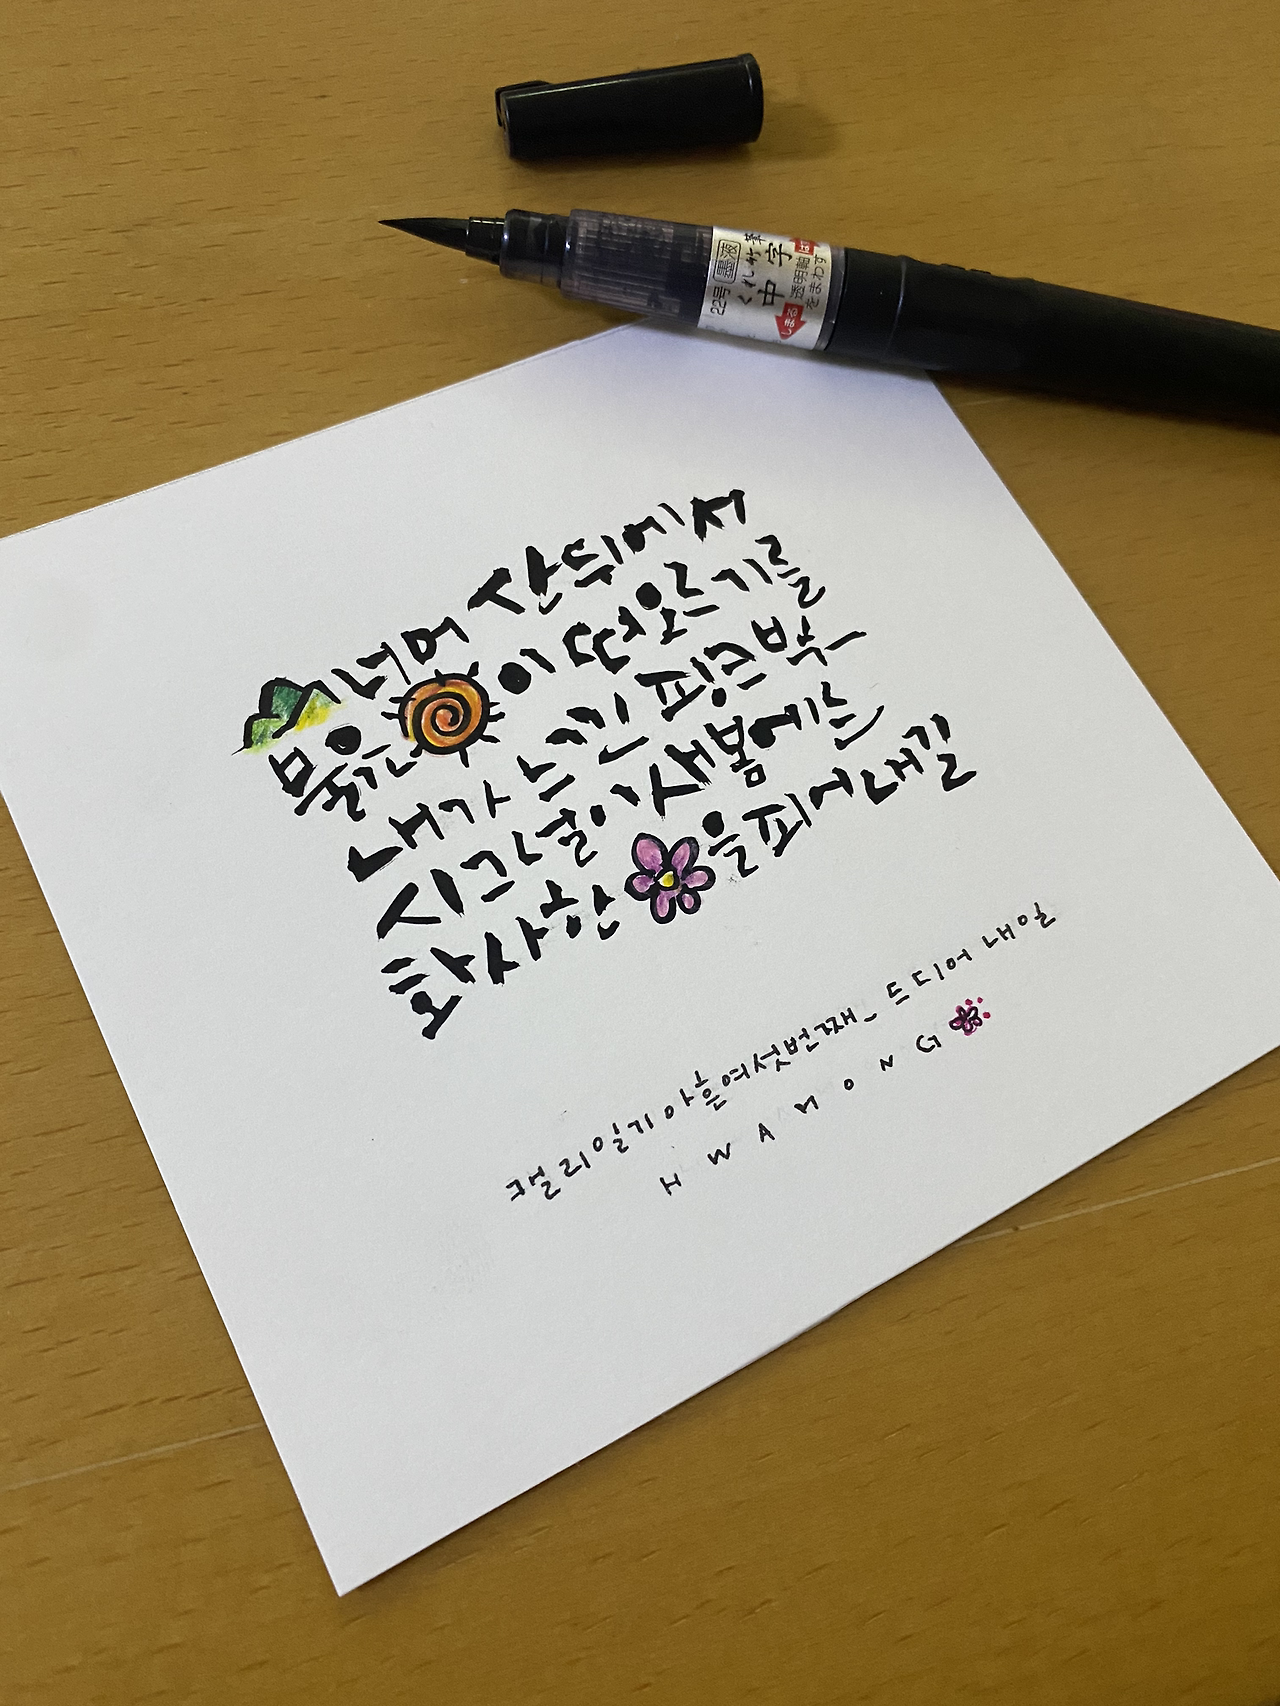 22号 墨液
くれ竹筆
中字
しまる
透明軸
をまわす
저 너머 산뒤에서
붉은 이 떠오르기를
내가 느낀 핑크빛
시그널이 새봄에는
화사한 을 피어내길
캘리일기 아흔여섯번째_ 드디어 내일
HWAMONG